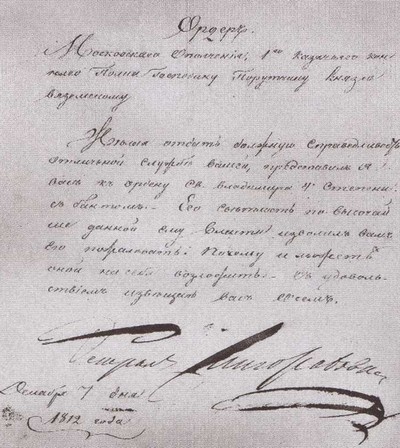 Ордеръ.
Московскаго Ополченія, 1го Казачьего кон
наго Полка Господину Порутчику Князю
Вяземскому
Желая отдать должную справедливость
отличной службѣ вашей, представилъ я
васъ къ ордену Св. Владимира 4й степени
съ бантомъ. Его свѣтлость по высочай
ше данной ему власти изволилъ вамъ
его пожаловать. Почему и
на себя возложить. Съ удоволь
ствіемъ извѣщаю васъ о семъ.
Генералъ Милорадовичъ
Декабря 7 дня
1812 года